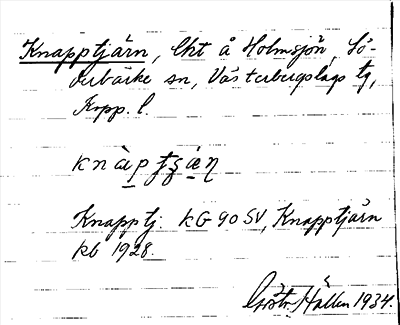 Knapptjärn, Ehct å Holmsjön, Sö-
derbärke sn, Västerbergslags tg,
Kopp. l.
knàptʂæ̀n
Knapptj. kG 90 SV, Knapptjärn
kb 1928.
Gösta Hållen 1934.